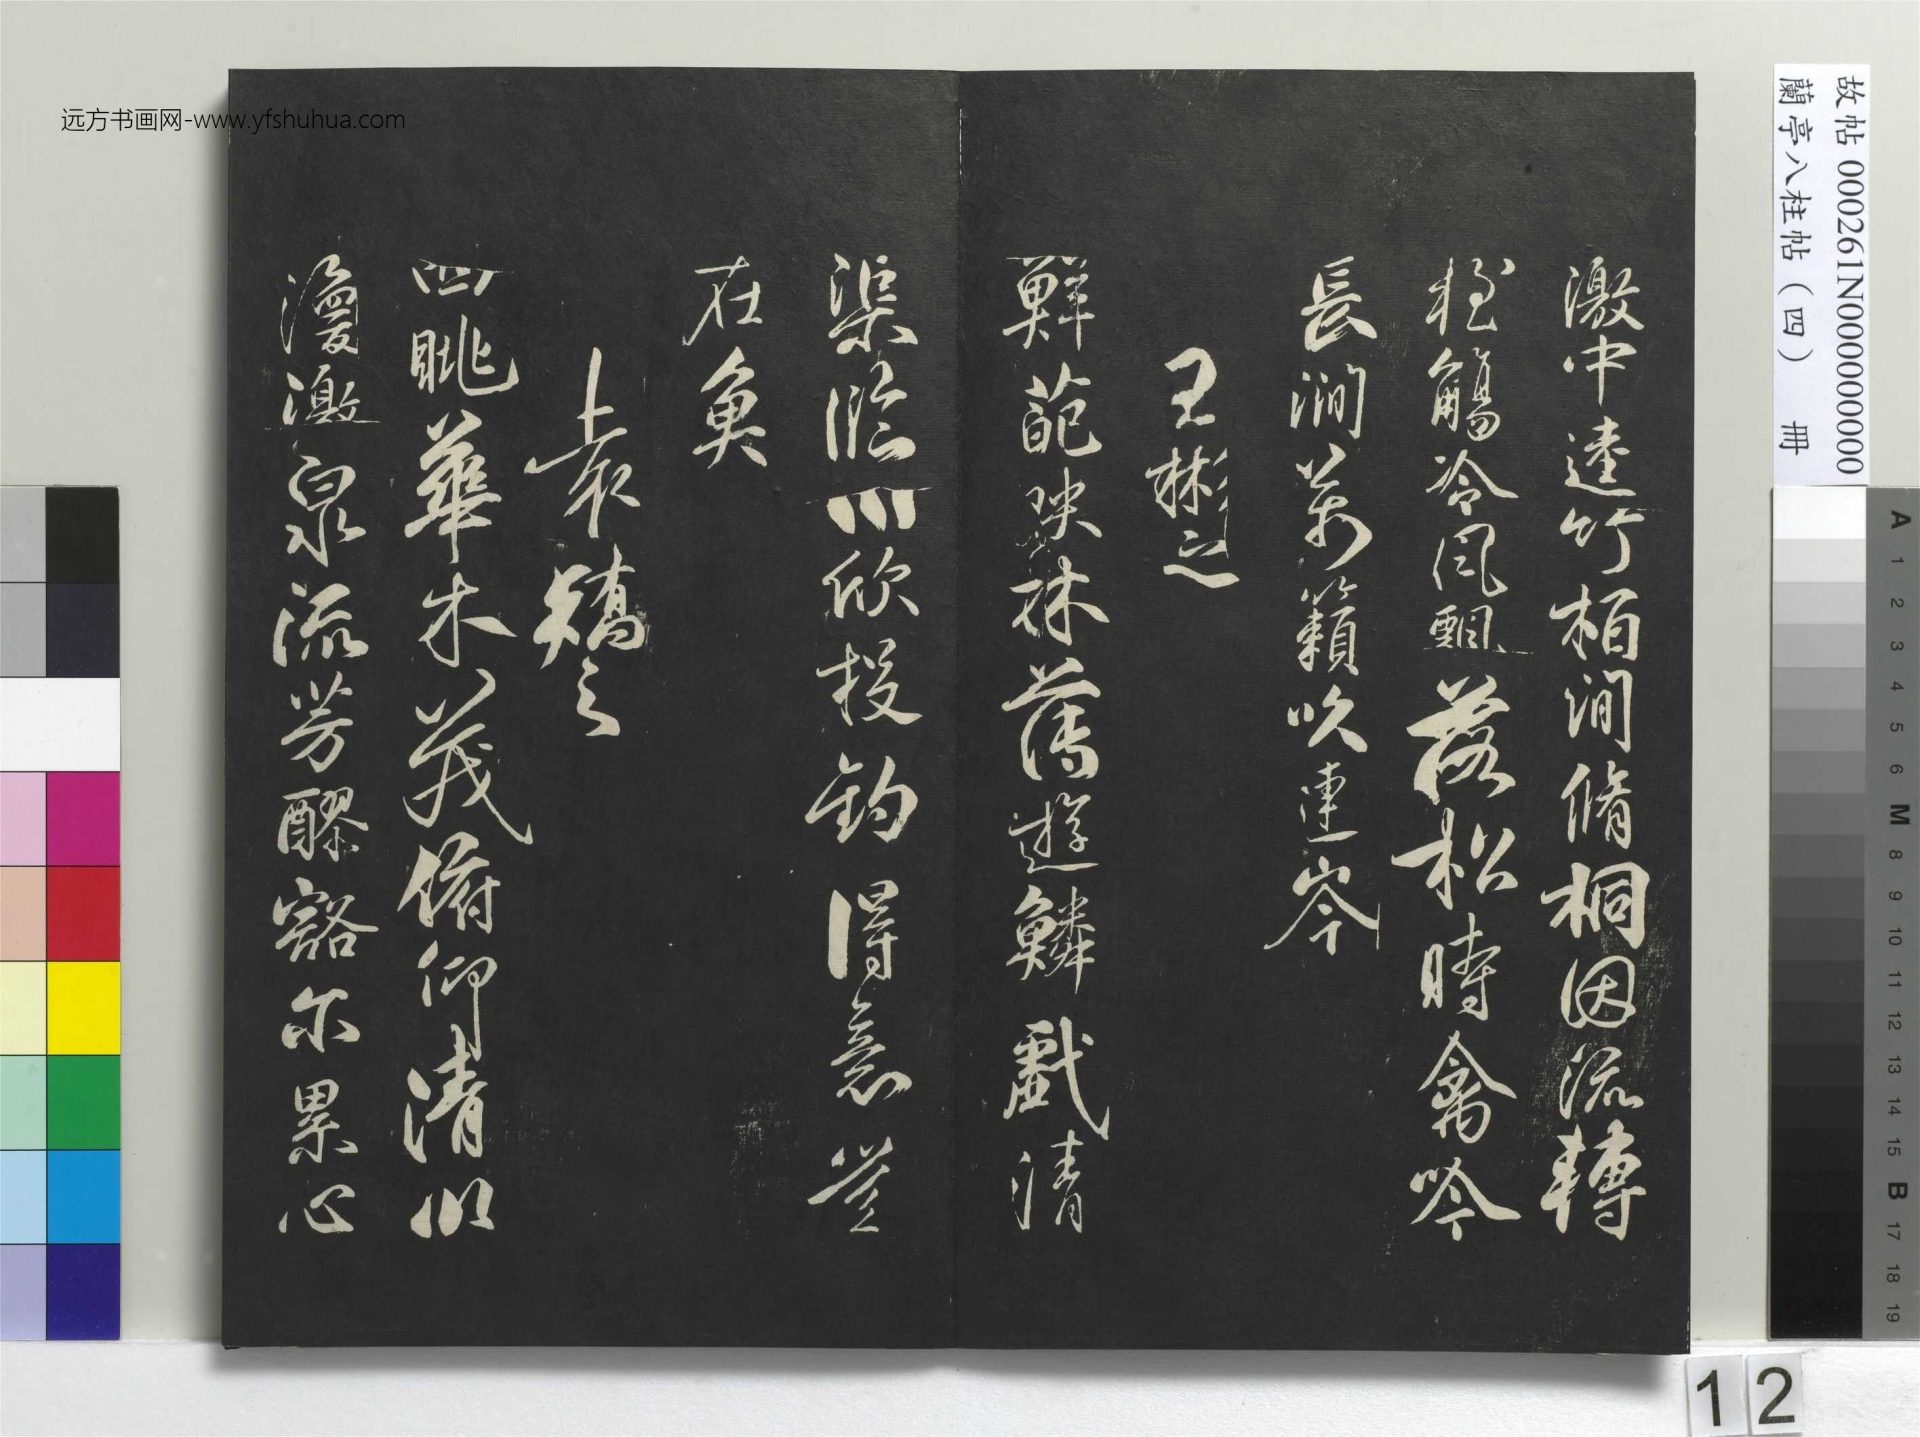 远方书画网-www.yfshuhua.com
故帖 000261N000000000
蘭亭八柱帖（四） 冊
激中逵竹栢澗脩桐因流轉
輕觴冷風飄落松時禽吟
長澗萬籟吹連岑
王彬之
鮮葩映林薄遊鱗戲清
渠臨川欣投釣得意豈
在魚
袁矯之
四眺華木茂俯仰清川
漫激泉流芳醪豁尔累心
A 1 2 3 4 5 6 M 8 9 10 11 12 13 14 15 B 17 18 19
12